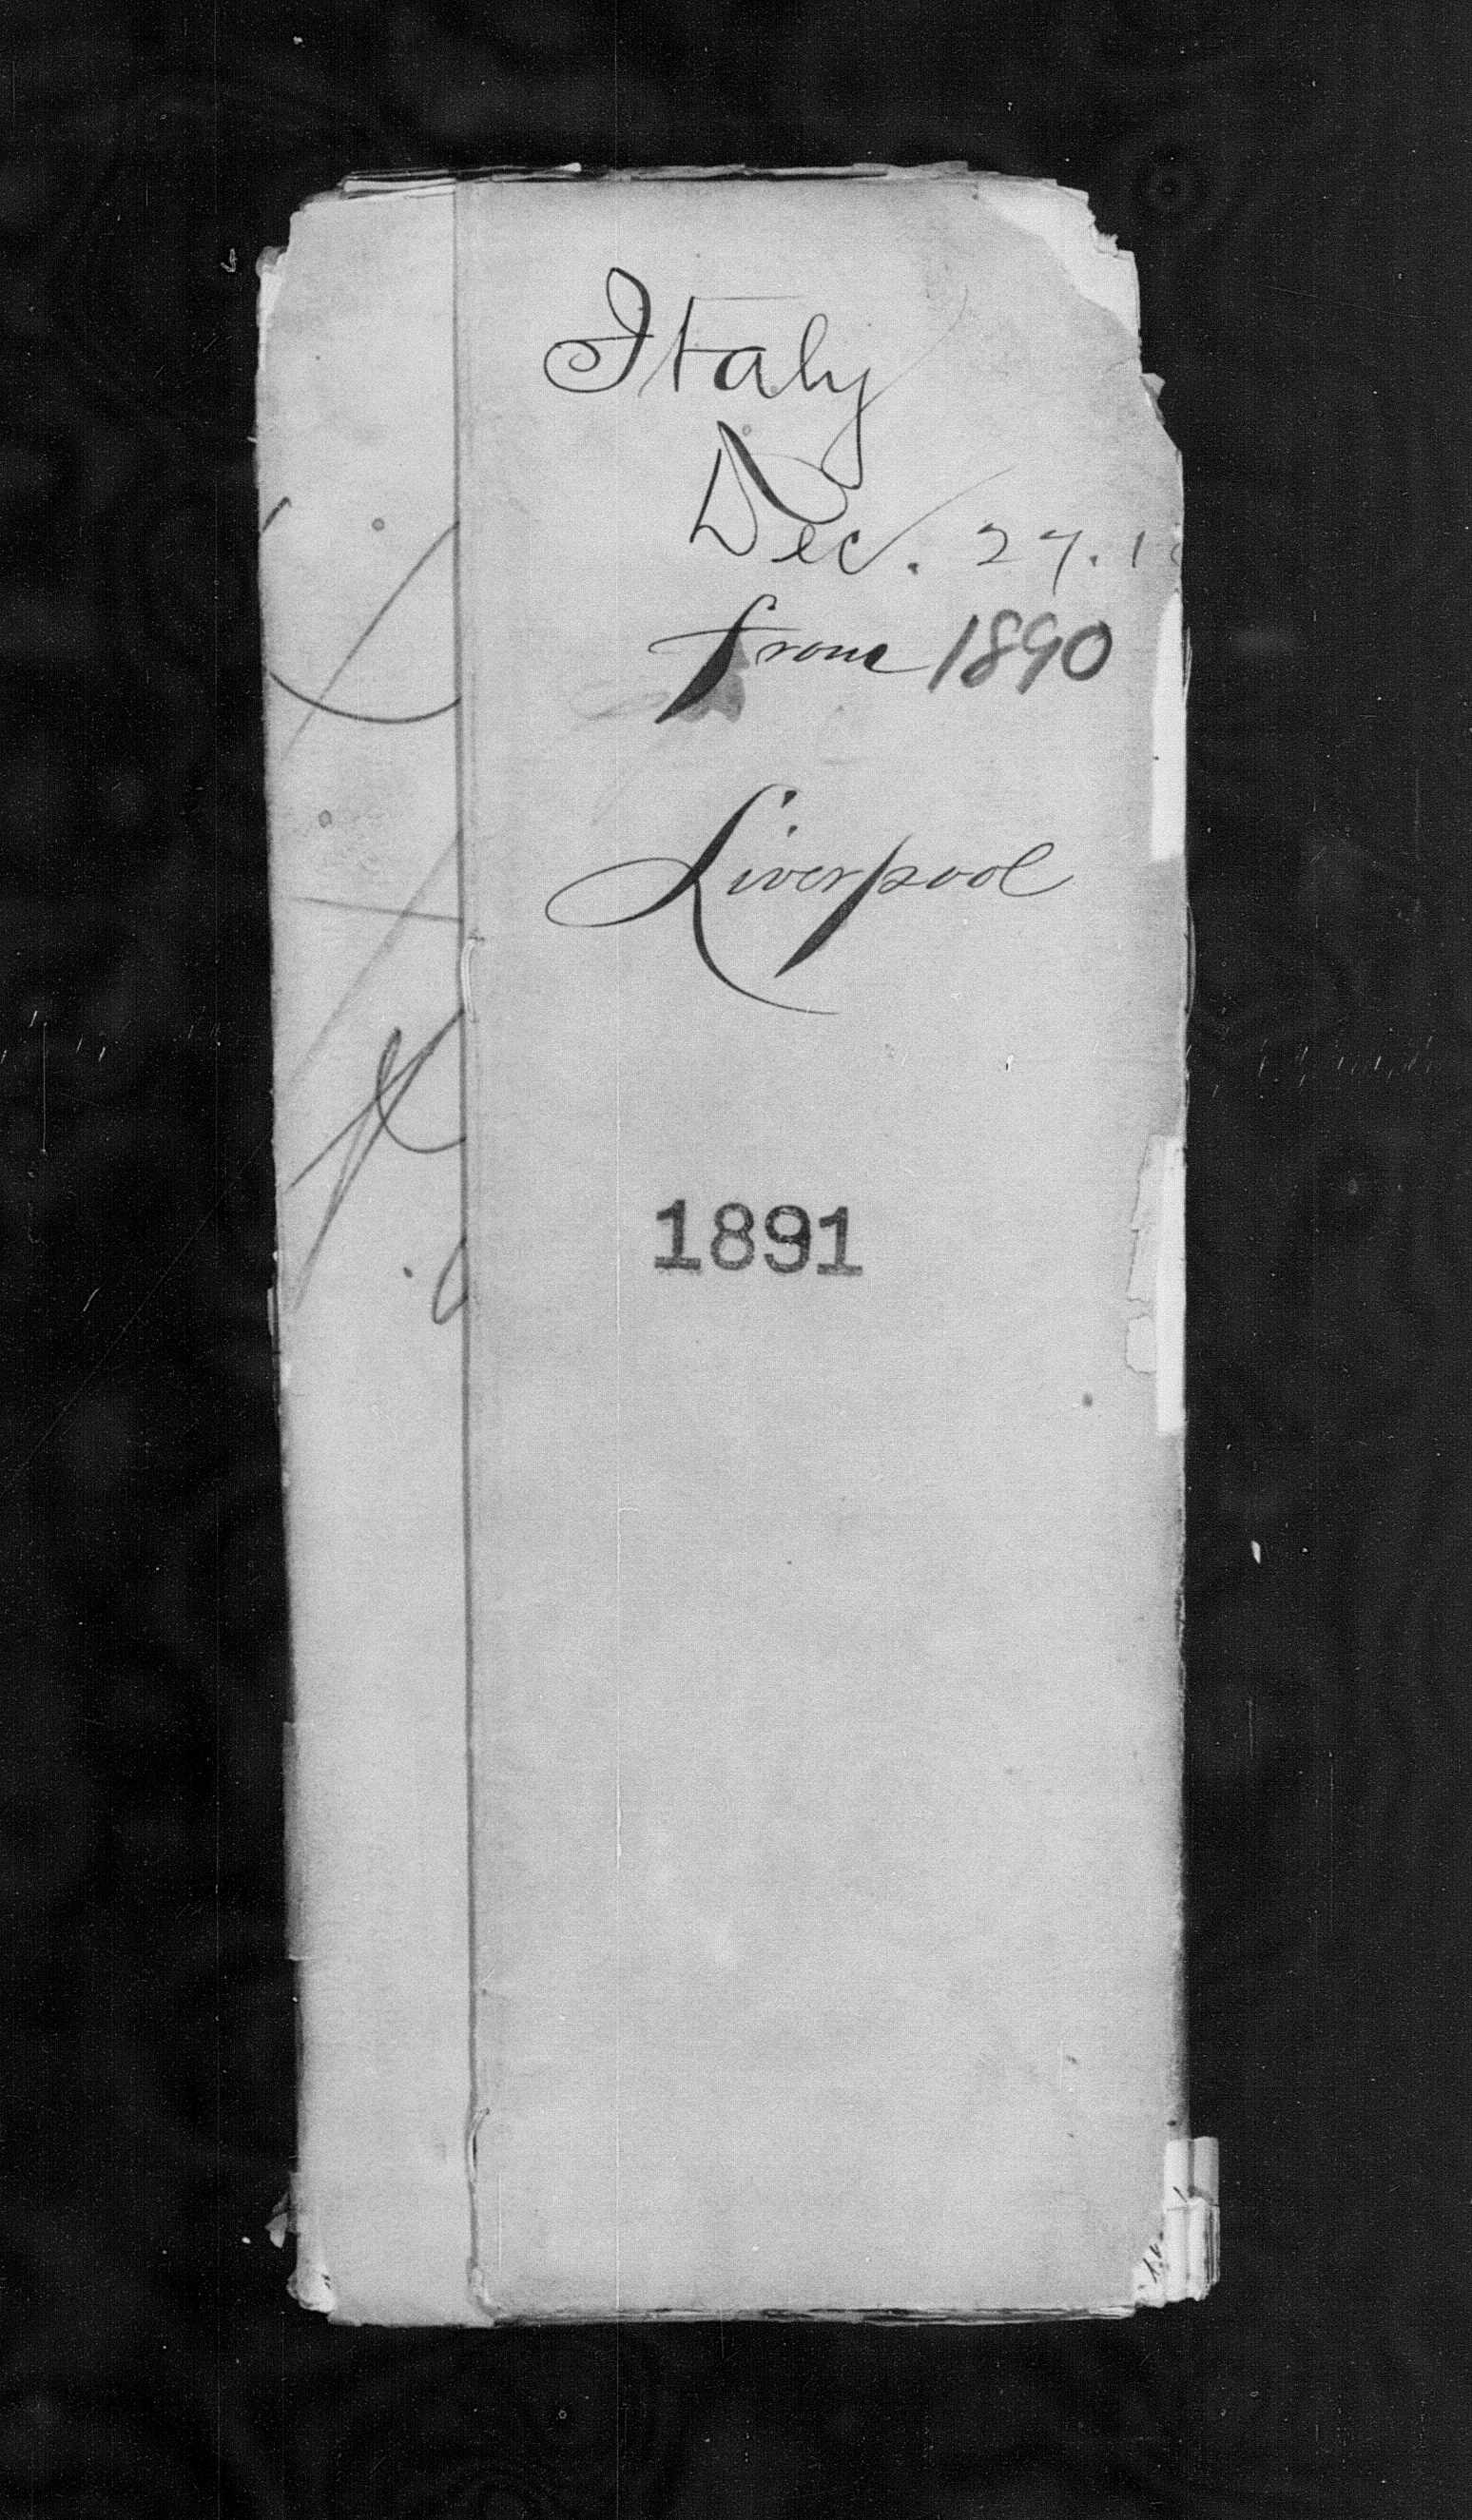 Italy
Dec. 27. 1
from 1890
Liverpool
1891